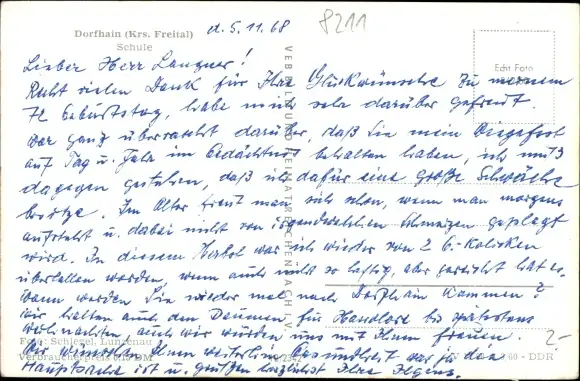 Dorfhain (Krs. Freital)
Schule
d. 5.11.68
8211
Echt Foto
Lieber Herr Langner!
Recht vielen Dank für Ihre Glückwünsche zu meinem
72 Geburtstag, habe mich sehr darüber gefreut.
War ganz überrascht darüber, daß Sie mein Wiegefest
auf Tag u. Jahr im Gedächtnis behalten haben, ich muß
dagegen gestehen, daß ich dafür eine große Schwäche
besitze. Im Alter freut man sich schon, wenn man morgens
aufsteht u. dabei nicht von irgendwelchen Schmerzen geplagt
wird. In diesem Herbst war ich wieder von 2 G.-Koliken
überfallen worden, wenn auch nicht so heftig, aber gereicht hat es.
Wann werden Sie wieder mal nach Dorfhain kommen?
Wir halten auch den Daumen für spätestens
Weihnachten, auch wir würden uns mit Ihnen freuen.
Wir wünschen Ihnen weiterhin Gesundheit was ja die
Hauptsache ist u. grüßen herzlichst Ihre
Foto: Schlegel, Lunzenau
Verbraucherpreis 0,15 DM
60 - DDR
2-